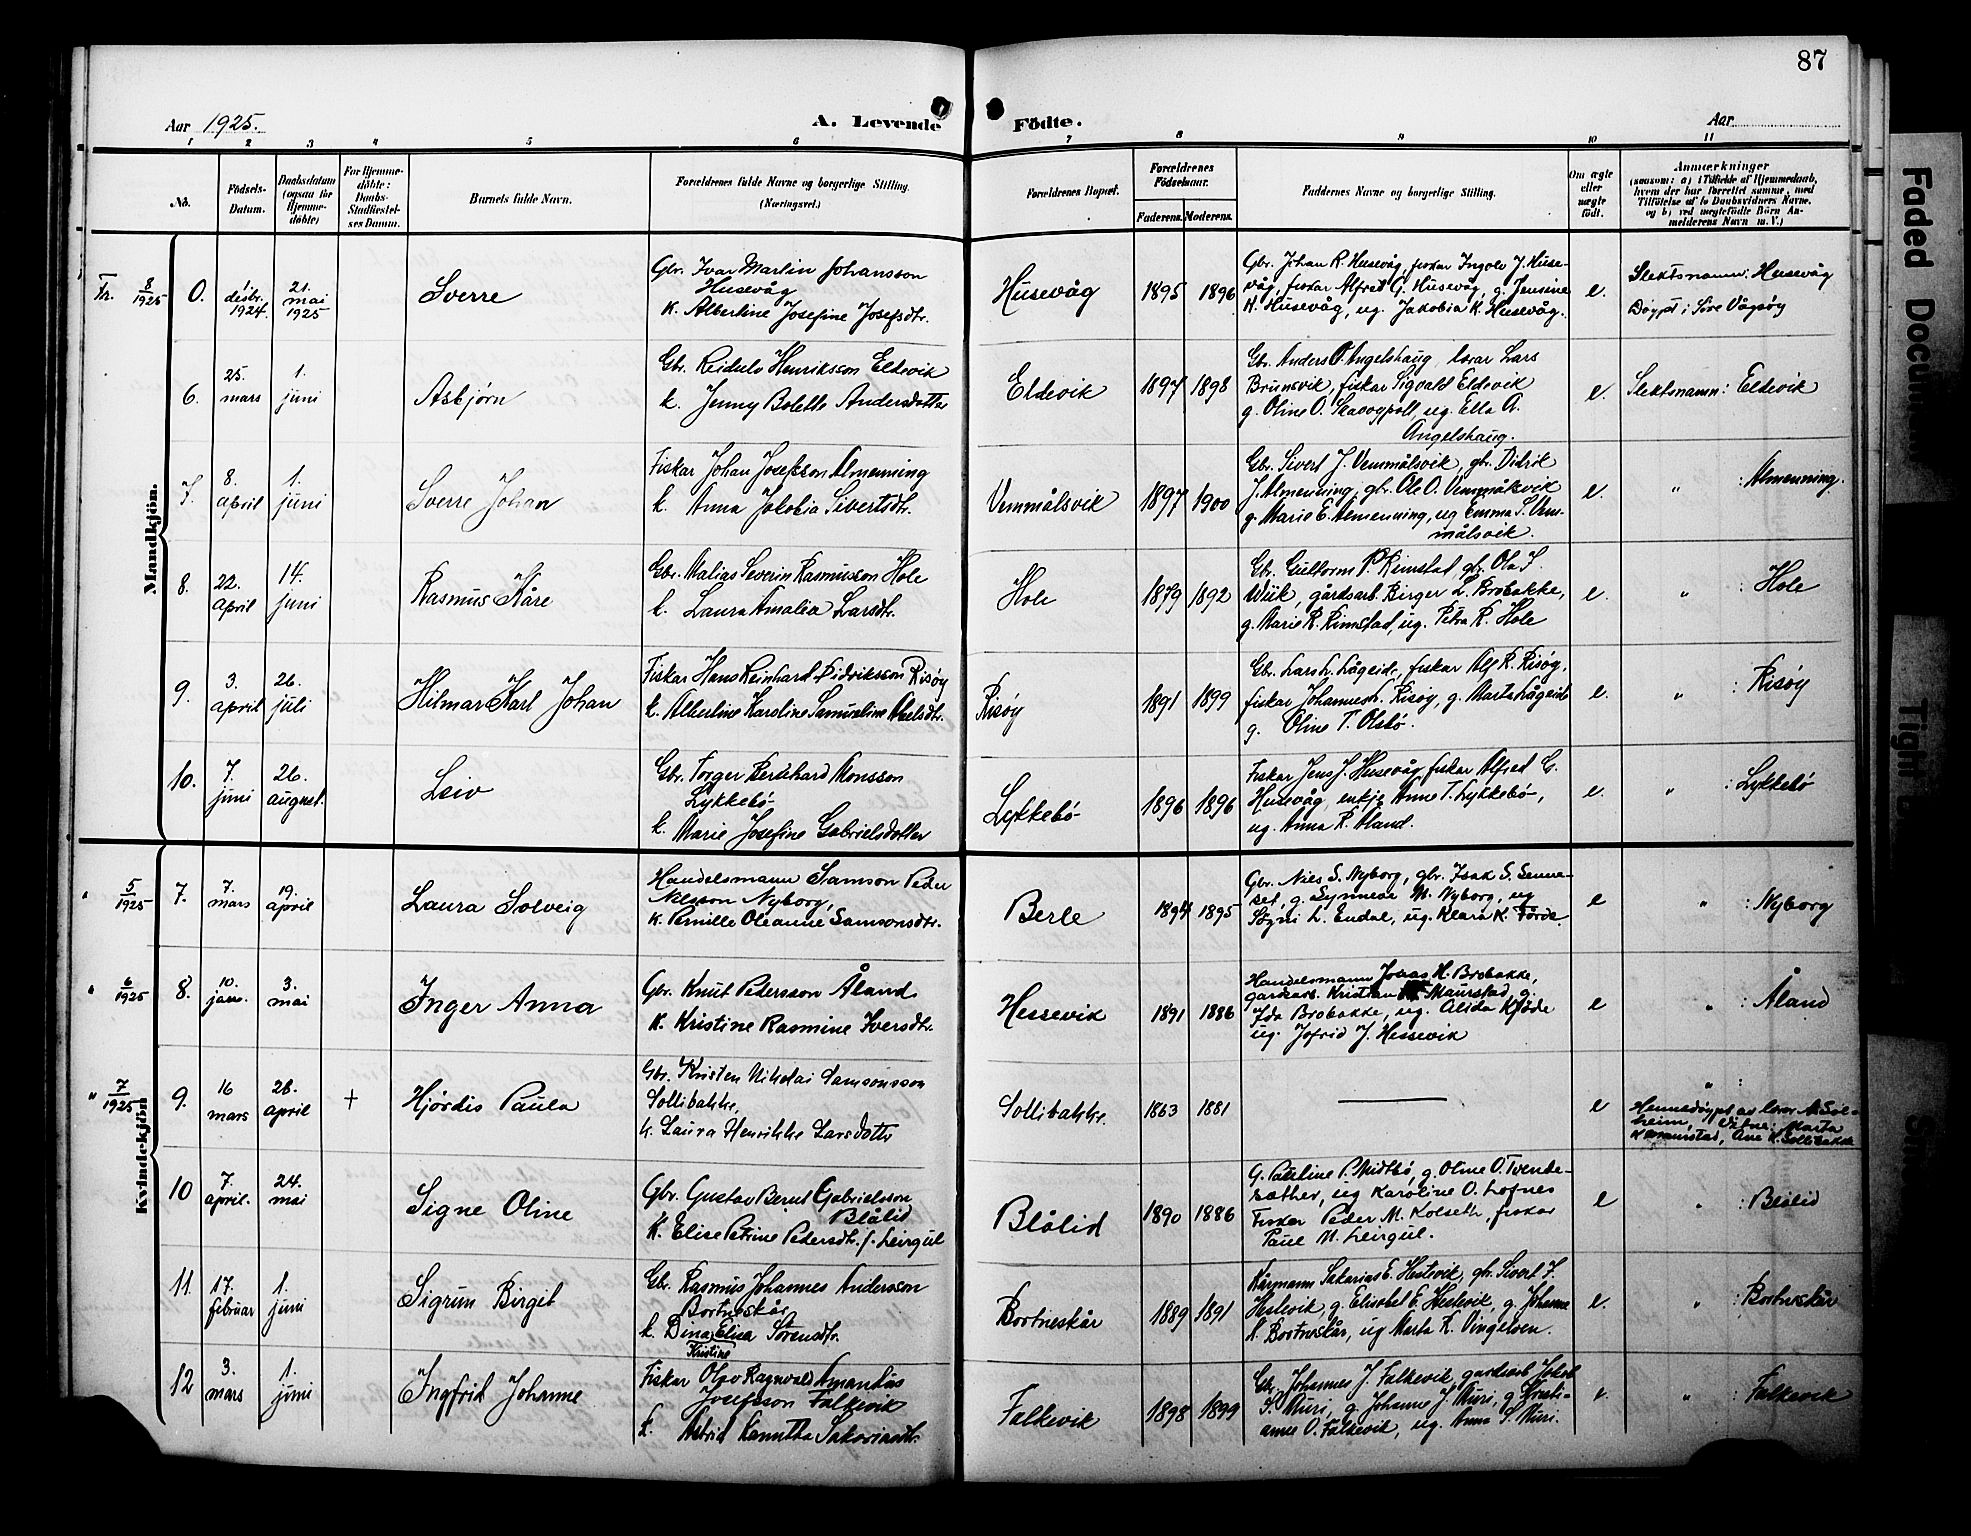 87
Aar 1925. A. Levende Fødte. Aar
1 2 3 4 5 6 7 8 9 10 11
No. Fødsels-Datum. Daabsdatum (ogsaa for Hjemme-døbte) For Hjemme-døbte: Daabs-Stadfæstel-ses Datum. Barnets fulde Navn. Forældrenes fulde Navne og borgerlige Stilling. (Næringsvei.) Forældrenes Bopæl. Forældrenes Fødselsaar. Faderens. Moderens. Faddernes Navne og borgerlige Stilling. Om ægte eller uægte født. Anmærkninger
(saasom: a) i Tilfælde af Hjemmedaab,
hvem der har forrettet samme, med
Tilføielse af to Daabsvidners Navne,
og b) ved uægtefødte Børn An-
melderens Navn m. V.)
Mandkjön.
Tr. 8/1925 0. 1 desbr. 1924. 21. mai 1925 Sverre
Gbr. Ivar Martin Johansson
Husevåg
k. Albertine Josefine Josefsdtr.
Husevåg 1895 1896
Gbr. Johan R. Husevåg, fiskar Ingolv J. Huse-
våg, fiskar Alfred G. Husevåg, g. Jensine
H. Husevåg, ug. Jakobia K. Husevåg.
e. Slektsnamn: Husevåg
Döypt i Söre Vågsöy
6. 25. mars 1. juni Asbjørn
Gbr. Reidulv Henriksson Eldevik
k. Jenny Bolette Andersdotter
Eldevik 1897 1898
Gbr. Anders O. Angelshaug, lærar Lars
Brunsvik, fiskar Sigvald Eldevik
g. Oline O. Skavøypoll, ug. Ella A.
Angelshaug.
e. Slektsnamn: Eldevik
7. 8. april 1. juni Sverre Johan
Fiskar Johan Josefsson Almenning
k. Anna Jakobia Sivertsdtr.
Vemmålsvik 1897 1900
Gbr. Sivert J. Vemmålsvik, gbr. Didrik
J. Almenning, gbr. Ole O. Vemmålsvik
g. Marie E. Almenning, ug Emma S. Vem-
målsvik.
e. " Almenning.
8. 22. april 14. juni Rasmus Kåre
Gbr. Matias Severin Rasmusson Hole
k. Laura Amalia Larsdtr.
Hole 1879 1892
Gbr. Guttorm P. Rimstad, gbr. Ola I.
Wiik, gårdsarb. Birger L. Brobakke,
g. Marie R. Rimstad, ug. Petra R. Hole
e. " : Hole
9. 3. april 26. juli Hilmar Karl Johan
Fiskar Hans Reinhard Didriksson Risöy
k. Albertine Karoline Samueline Akselsdtr.
Risöy 1891 1899
Gbr. Lars L. Lågeide, fiskar Alf R. Risöy,
fiskar Johannes L. Risöy, g. Marta Lågeide
g. Oline T. Olsbö.
e. " : Risöy
10. 7. juni 26. august. Leiv
Gbr. Torger Bernhard Monsson
Lykkebö
k. Marie Josefine Gabrielsdotter
Lykkebö 1896 1896
Fiskar Jens J. Husevåg, fiskar Alfred G.
Husevåg, enkje Anne T. Lykkebö,
ug. Anna R. Åland.
e. " : Lykkebö
Kvindekjön
" 5/1925 7. 7. mars 19. april Laura Solveig
Handelsmann Samson Peder
Nilsson Nyborg,
k. Pernille Oleanne Samsonsdtr.
Berle 1894 1895
Gbr. Nils S. Nyborg, gbr. Isak S. Senne-
set, g. Synneve M. Nyborg, ug
Søgni L. Endal, ug. Klara K. Førde.
e " : Nyborg
" 6/1925 8. 10. jan. 3. mai Inger Anna
Gbr. Knut Pedersson Åland
k. Kristine Rasmine Iversdtr.
Hessevik 1891 1886
Handelsmann Jonas H. Brobakke,
gardsarb. Kristian Maurstad, g.
Ida Brobakke, ug. Alida Kjøde
ug. Jofrid J. Hessevik
e " : Åland
" 7/1925 9. 16 mars 28. april + Hjørdis Paula
Gbr. Kristen Nikolai Samsonsson
Sollibakke,
k. Laura Henrikke Larsdottr
Sollibakke. 1863 1881
e " :
Heimedøypt av lærar A. Sol-
heim, Vitne: Marta
K. Rimstad, Ane K. Sollibakke
10 7. april. 24. mai Signe Oline
Gbr. Gustav Bernt Gabrielsson
Blålid
k. Elise Petrine Pedersdtr. f. Leirgul
Blålid 1890 1886
G. Pauline P. Midtbø, g. Oline O. Tvende-
sæther, ug Karoline O. Lofnes
Fiskar Peder M. Kolseth, fiskar
Paul M. Leirgul.
e " : Blålid
11. 17. februar 1. juni Sigrun Birgit
Gbr. Rasmus Johannes Andersson
Bortneskår
k. Dina Elisa Sörensdtr.
Kristine
Bortneskår 1889 1891
Kårmann Sakarias E. Hestevik, gbr. Sivert I.
Hestevik, g. Elisabet E. Hestevik, g. Johanne
A. Bortneskår, ug Marta R. Vingelven.
e. " : Bortneskår
12 3. mars 1. juni Ingfrid Johanne
Fiskar Olav Ragnvald Amandus
Josefsson Falkevik
k. Astrid Ranutta Sakariasdtr.
Falkevik 1898 1899
Gbr. Johannes J. Falkevik, gardsarb. Jakob
S. Muri, g. Johanne J. Muri, g. Kristi-
anne O. Falkevik, ug. Anna S. Muri.
e. " : Falkevik
Faded Document
Tight